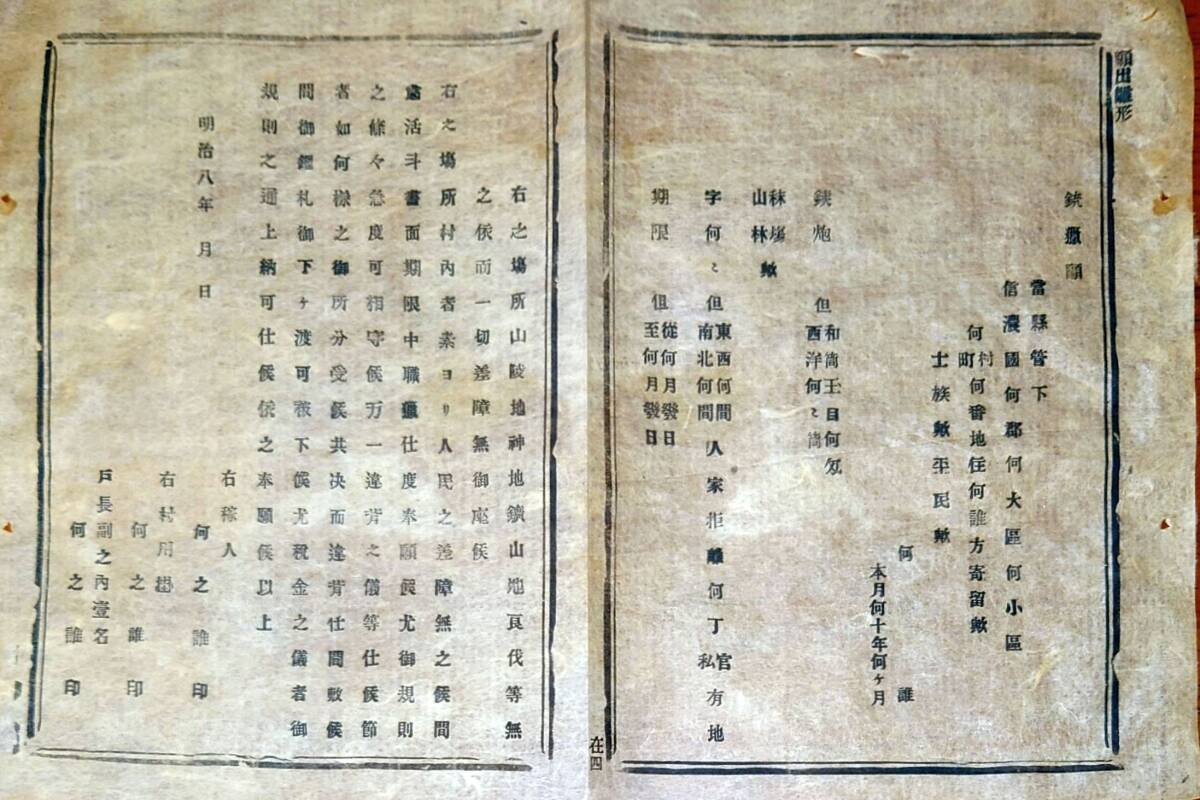 願出雛形
銃獵願
當縣管下
信濃國何郡何大區何小區
何村町何番地住何誰方寄留歟
士族歟平民歟
何誰
本月何十年何ヶ月
銃炮 但和筒玉目何匁西洋何〻筒
秣塲山林歟
字何〻 但東西何間南北何間 人家拒離何丁官私有地
期限 但從何月發日至何月發日
在四
右之塲所山陵地神地鑛山地良伐等無
之依而一切差障無御座候
右之塲所村內者素ヨリ人民之差障無之候間
活斗書面期限中職獵仕度奉願候尤御規則
之條々急度可相守候万一違背之儀等仕候節
者如何樣之御所分受候共决而違背仕間敷候
間御鑑札御下ヶ渡可被下候尤稅金之儀者御
規則之通上納可仕候依之奉願候以上
明治八年 月 日
右稼人
何之誰 印
右村用掛
何之誰 印
戶長副之內壹名
何之誰 印